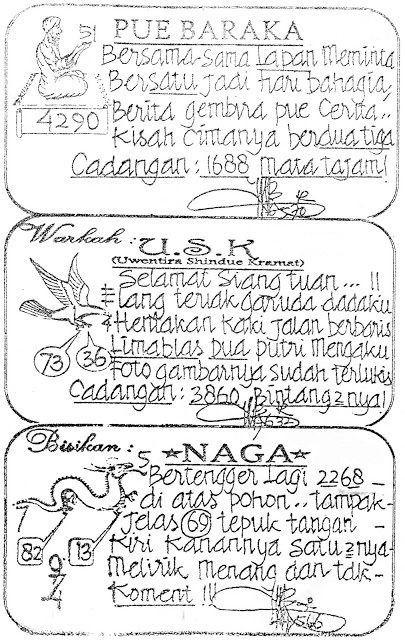 PUE BARAKA
51
4290
Bersama-sama lapan Meminta
Bersatu jadi hari bahagia,
Berita gembira pue Cerita..
Kisah Cintanya berdua tiga
Cadangan : 1688 mata tajam!
Warkah : U.S.K
(Uwentira Shindue Kramat)
Selamat Siang tuan... !!
Elang teriak garuda dadaku
4 Hentakan Kaki jalan berbaris
73 36
Limablas Dua putri Mengaku
Foto gambarnya sudah terlukis
Cadangan : 3860, Bintang2nya!
Bisikan : ★NAGA★
5
Bertengger lagi 2268 -
di atas pohon.. tampak-
7
Jelas 69 tepuk tangan -
82 13
Kiri Kanannya satu2nya-
974
Melirik menang dan tdk -
Koment !!!